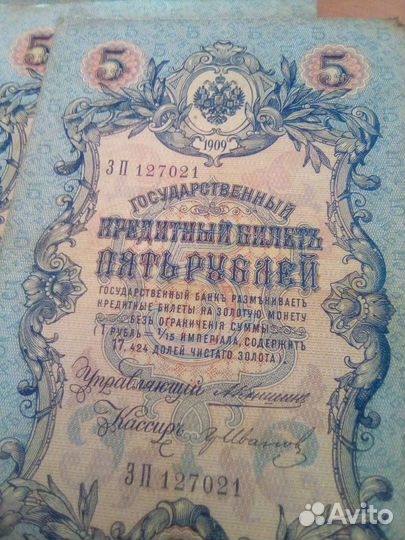 5 5
5
1909
ЗП 127021
ГОСУДАРСТВЕННЫЙ
КРЕДИТНЫЙ БИЛЕТЪ
ПЯТЬ РУБЛЕЙ
ГОСУДАРСТВЕННЫЙ БАНКЪ РАЗМѢНИВАЕТЪ
КРЕДИТНЫЕ БИЛЕТЫ НА ЗОЛОТУЮ МОНЕТУ
БЕЗЪ ОГРАНИЧЕНІЯ СУММЫ
(1 РУБЛЬ = 1/15 ИМПЕРІАЛА, СОДЕРЖИТЪ
17,424 ДОЛЕЙ ЧИСТАГО ЗОЛОТА).
Управляющій
Кассиръ
ЗП 127021
Avito